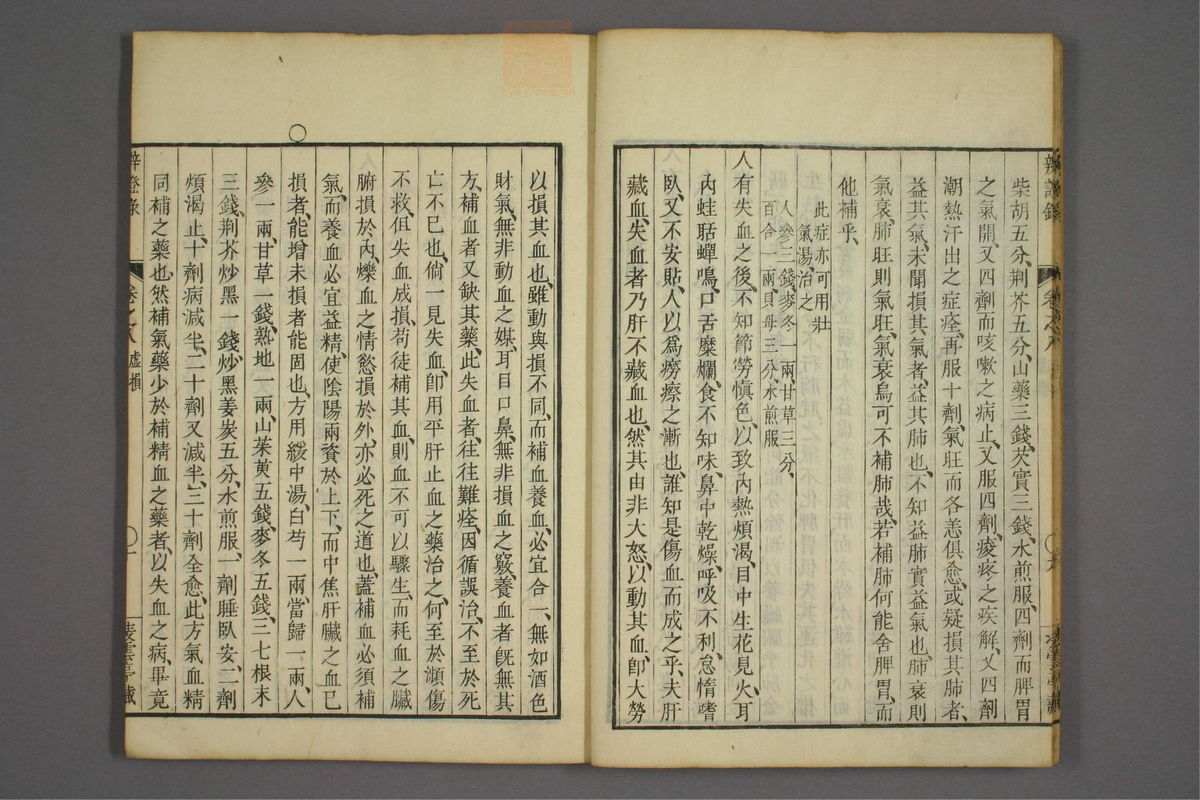 柴胡五分、荆芥五分、山藥三錢、芡實三錢、水煎服、四劑而脾胃
之氣開、又四劑而咳嗽之病止、又服四劑、痠疼之疾解、又四劑
潮熱汗出之症痊、再服十劑、氣旺而各恙俱愈、或疑損其肺者、
益其氣、未聞損其氣者、益其肺也、不知益肺實益氣也、肺衰則
氣衰、肺旺則氣旺、氣衰烏可不補肺哉、若補肺何能舍脾胃、而
他補乎、
此症亦可用壯
氣湯治之
人參三錢、麥冬一兩、甘草三分、
百合一兩、貝母三分、水煎服
人有失血之後、不知節勞愼色、以致內熱煩渴、目中生花見火、耳
內蛙聒蟬鳴、口舌糜爛、食不知味、鼻中乾燥、呼吸不利、怠惰嗜
臥、又不安貼、人以爲癆瘵之漸也、誰知是傷血而成之乎、夫肝
藏血、失血者乃肝不藏血也、然其由非大怒、以動其血、卽大勞
以損其血也、雖動與損不同、而補血養血、必宜合一、無如酒色
財氣、無非動血之媒、耳目口鼻、無非損血之竅、養血者旣無其
方、補血者又缺其藥、此失血者、往往難痊、因循誤治、不至於死
亡不已也、倘一見失血、卽用平肝止血之藥治之、何至於瀕傷
不救、但失血成損、苟徒補其血、則血不可以驟生、而耗血之臟
腑損於內、爍血之情慾損於外、亦必死之道也、蓋補血必須補
氣、而養血必宜益精、使陰陽兩資於上下、而中焦肝臟之血已
損者、能增未損者能固也、方用緩中湯、白芍一兩、當歸一兩、人
參一兩、甘草一錢、熟地一兩、山茱萸五錢、麥冬五錢、三七根末
三錢、荆芥炒黑一錢、炒黑姜炭五分、水煎服、一劑睡臥安、二劑
煩渴止、十劑病減半、二十劑又減半、三十劑全愈、此方氣血精
同補之藥也、然補氣藥少於補精血之藥者、以失血之病、畢竟
辨證錄
卷之八
虛損